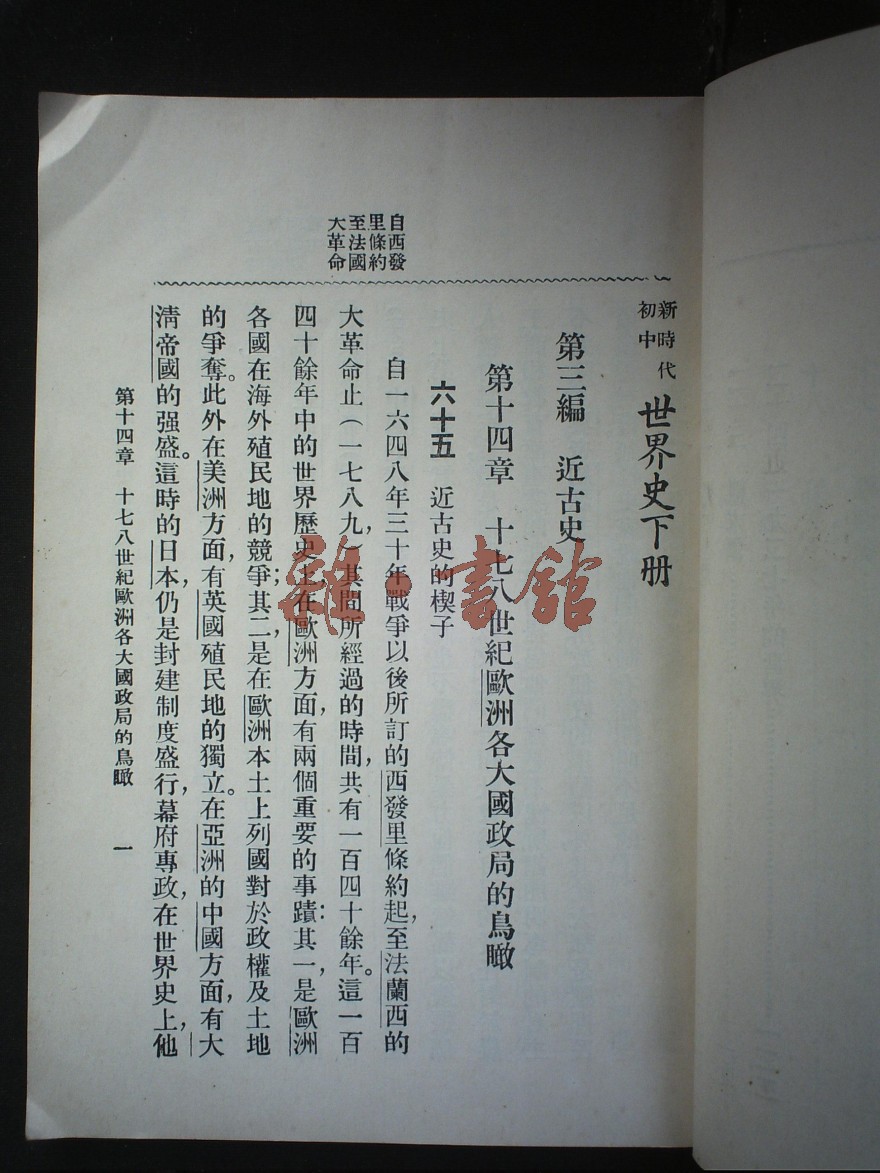 新時代
初中
世界史下册
第三編　近古史
第十四章　十七八世紀歐洲各大國政局的鳥瞰
六十五　近古史的楔子
自西發
里條約
至法國
大革命
自一六四八年三十年戰爭以後所訂的西發里條約起，至法蘭西的
大革命止（一七八九），其間所經過的時間，共有一百四十餘年。這一百
四十餘年中的世界歷史，在歐洲方面，有兩個重要的事蹟：其一，是歐洲
各國在海外殖民地的競爭；其二，是在歐洲本土上列國對於政權及土地
的爭奪。此外在美洲方面，有英國殖民地的獨立。在亞洲的中國方面，有大
淸帝國的强盛。這時的日本，仍是封建制度盛行，幕府專政，在世界史上，他
第十四章　十七八世紀歐洲各大國政局的鳥瞰　一
雜·書館